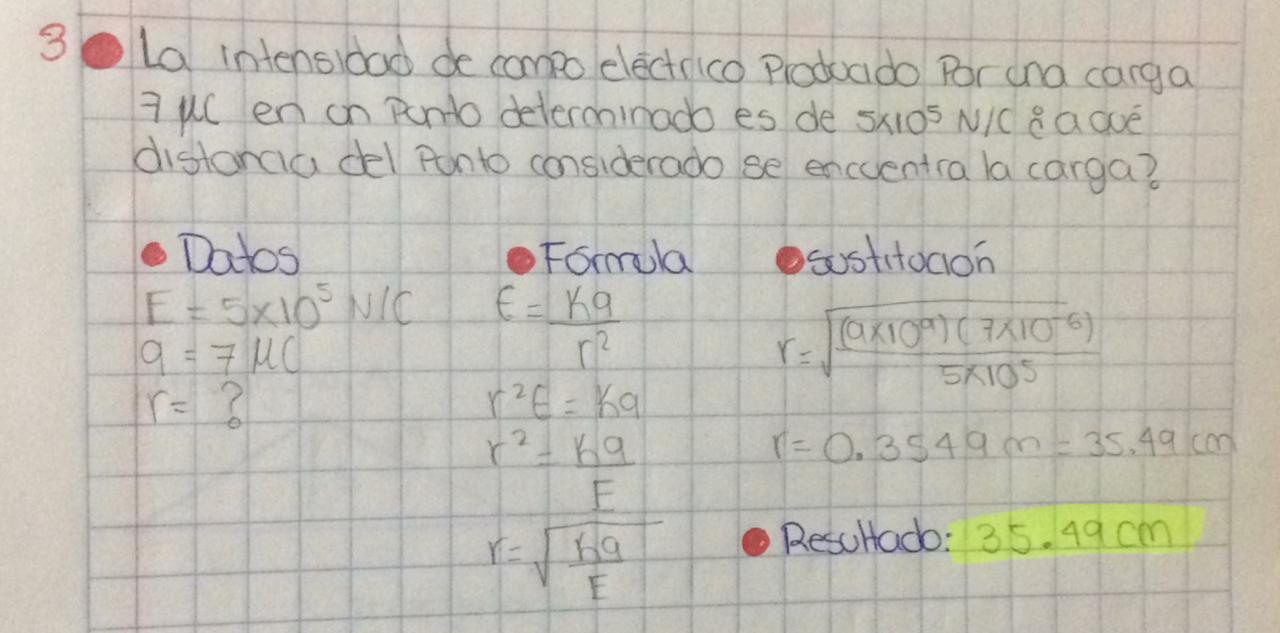 3 La intensidad de campo eléctrico Producido Por una carga
7 μC en un Punto determinado es de 5x10⁵ N/C ¿a qué
distancia del Punto considerado se encuentra la carga?
Datos
E = 5x10⁵ N/C
q = 7 μC
r= ?
Fórmula
E = Kq / r²
r²E = Kq
r² = Kq / E
r = √(Kq / E)
sustitución
r = √((9x10⁹)(7x10⁻⁶) / 5x10⁵)
r = 0.3549 m = 35.49 cm
Resultado: 35.49 cm